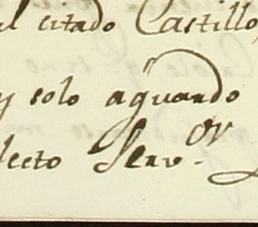 el citado Castillo,
y solo aguardo
lecto Serv.or